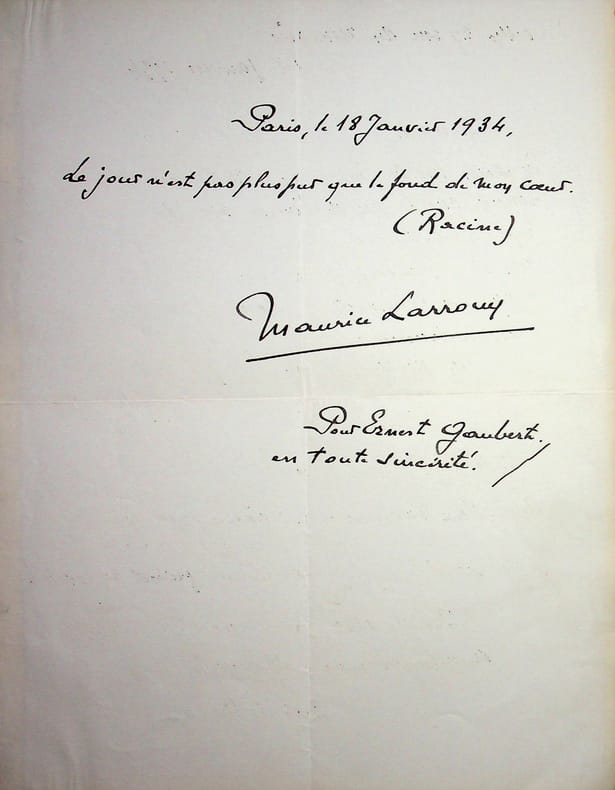 Paris, le 18 Janvier 1934,
Le jour n'est pas plus pur que le fond de mon cœur.
(Racine)
Maurice Larrouy
Pour Ernest Gaubert.
en toute sincérité.